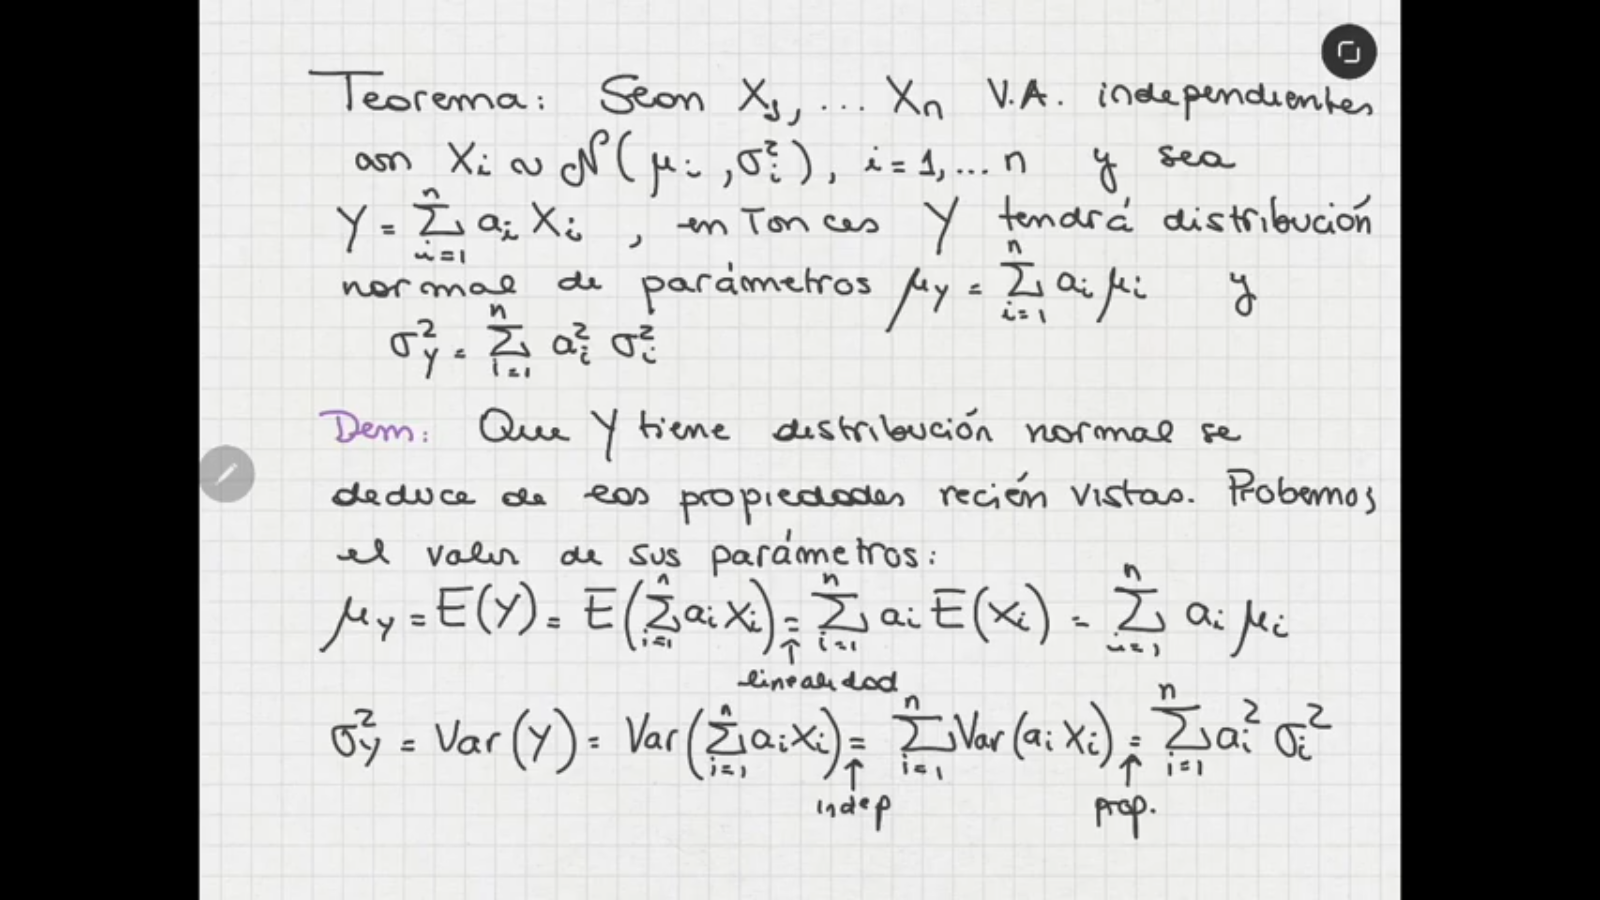 Teorema: Sean X₁, ... Xₙ V.A. independientes
con Xᵢ ~ N(μᵢ, σᵢ²), i = 1, ... n y sea
Y = ∑ᵢ₌₁ⁿ aᵢ Xᵢ, entonces Y tendrá distribución
normal de parámetros μ_Y = ∑ᵢ₌₁ⁿ aᵢ μᵢ y
σ_Y² = ∑ᵢ₌₁ⁿ aᵢ² σᵢ²
Dem: Que Y tiene distribución normal se
deduce de las propiedades recién vistas. Probemos
el valor de sus parámetros:
μ_Y = E(Y) = E(∑ᵢ₌₁ⁿ aᵢ Xᵢ) = ∑ᵢ₌₁ⁿ aᵢ E(Xᵢ) = ∑ᵢ₌₁ⁿ aᵢ μᵢ
↑
linealidad
σ_Y² = Var(Y) = Var(∑ᵢ₌₁ⁿ aᵢ Xᵢ) = ∑ᵢ₌₁ⁿ Var(aᵢ Xᵢ) = ∑ᵢ₌₁ⁿ aᵢ² σᵢ²
↑ ↑
indep prop.